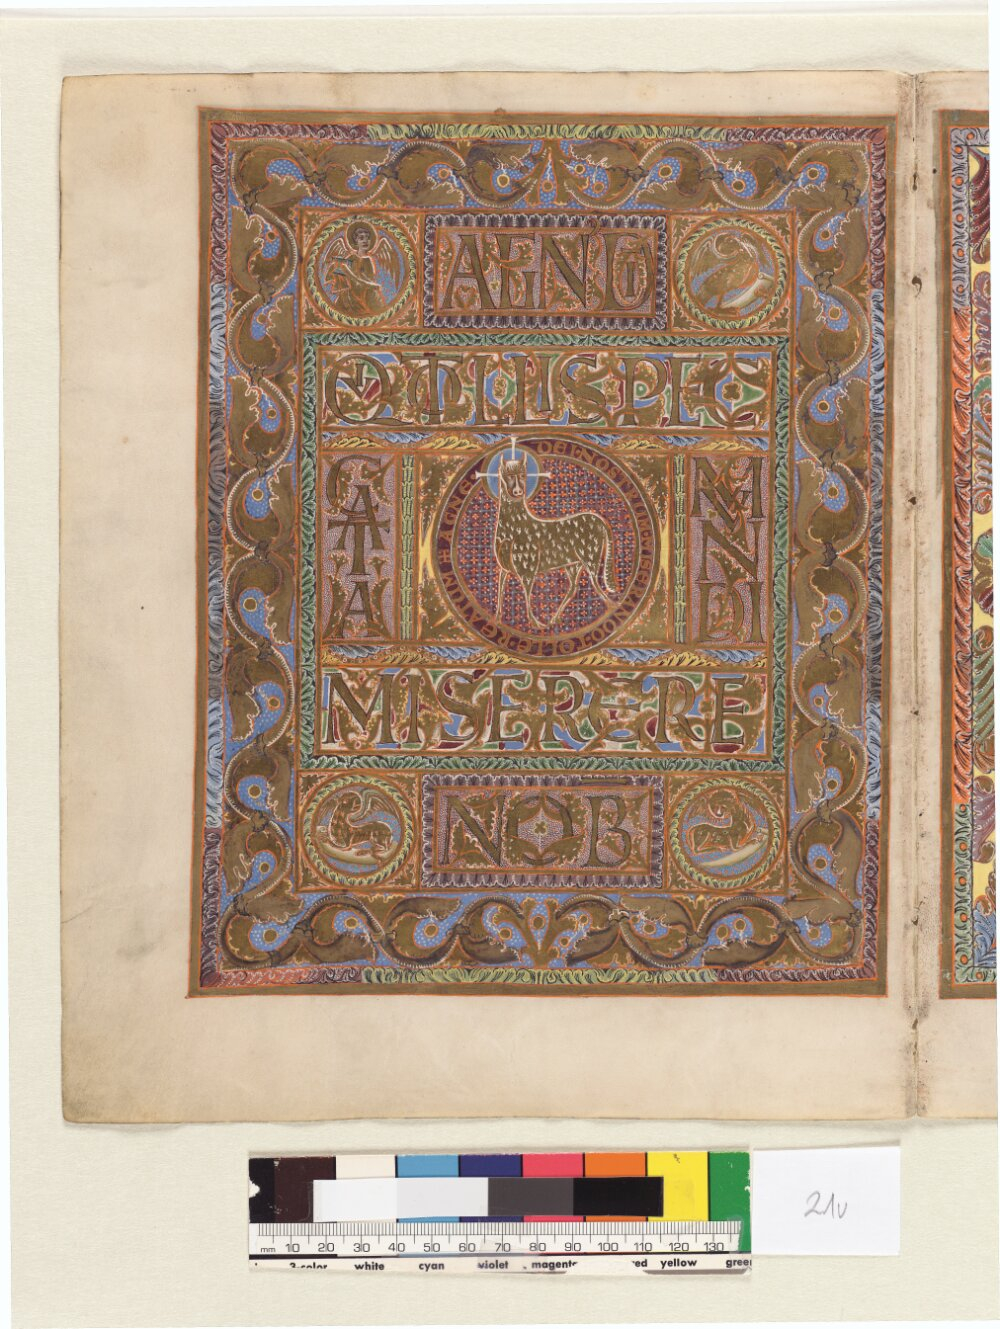 AGN DI
QUI TOLLIS PEC
CATA
MUNDI
MISERERE
NOB
21v
mm 10 20 30 40 50 60 70 80 90 100 110 120 130
3-color white cyan violet magenta red yellow green